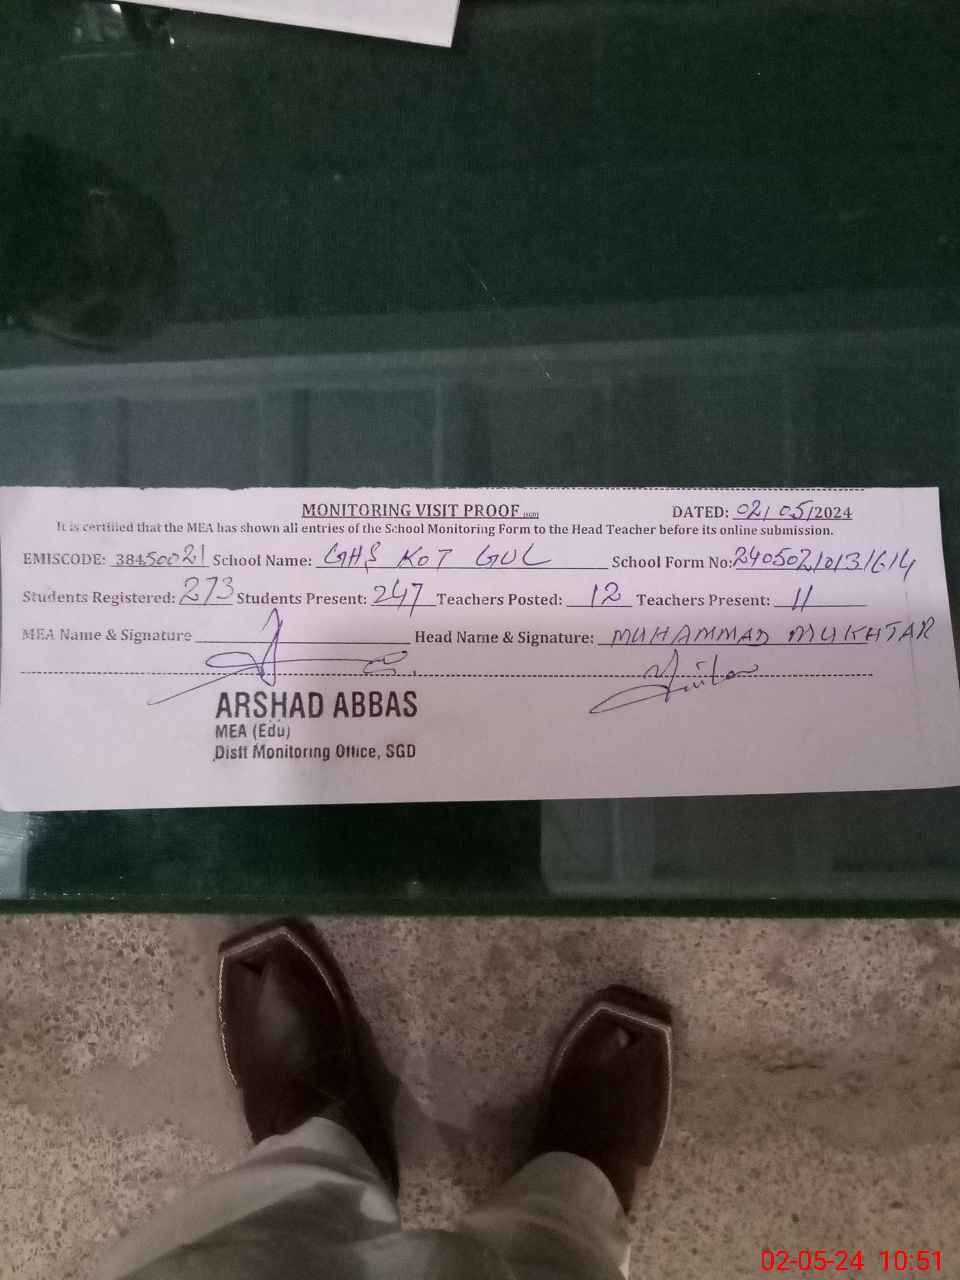 MONITORING VISIT PROOF (SGD) DATED: 02/05/2024
It is certified that the MEA has shown all entries of the School Monitoring Form to the Head Teacher before its online submission.
EMISCODE: 38450021 School Name: GHS KOT GUL School Form No:
Students Registered: 273 Students Present: 247 Teachers Posted: 12 Teachers Present: 11
MEA Name & Signature Head Name & Signature: MUHAMMAD MUKHTAR
ARSHAD ABBAS
MEA (Edu)
Distt Monitoring Office, SGD
02-05-24 10:51